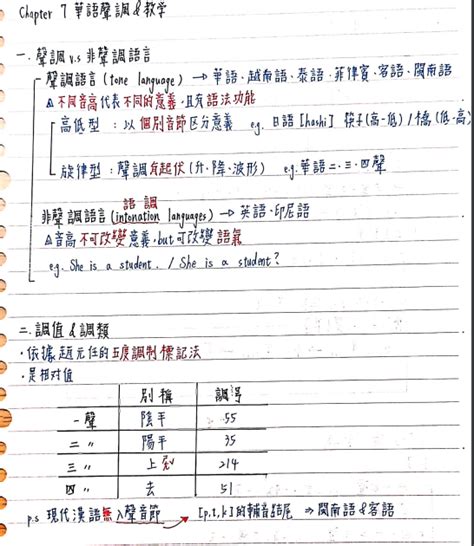 Chapter 7 華語聲調&教学
一.聲調 v.s 非聲調語言
聲調語言(tone language) → 華語、越南語、泰語、菲律賓、客語、閩南語
△不同音高代表不同的意義,且有語法功能
高低型:以個別音節区分意義 eg. 日語[hashi] 筷子(高-低)/橋(低-高)
旋律型:聲調有起伏(升、降、波形) eg.華語二、三、四聲
語調
非聲調語言(intonation languages) → 英語、印尼語
△音高不可改變意義,but可改變語氣
eg. She is a student. / She is a student?
二.調值&調類
·依據趙元任的五度調制標記法
·是相対值
別稱 調号
一聲 陰平 55
二〃 陽平 35
三〃 上 214
四〃 去 51
p.s 現代漢語無入聲音節 → [p,t,k]的輔音結尾 ⇒ 閩南語&客語